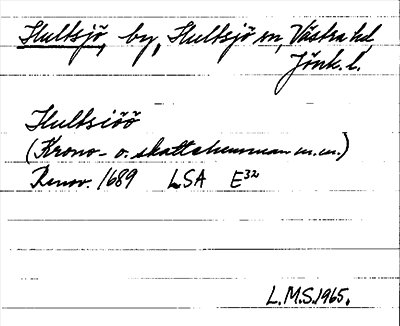 Hultsjö, by, Hultsjö sn, Västra hd,
Jönk. l.
Hultsiöö
(Krono- o. skattehemman m.m.)
Renov. 1689 LSA E³²
L.M.S. 1965.